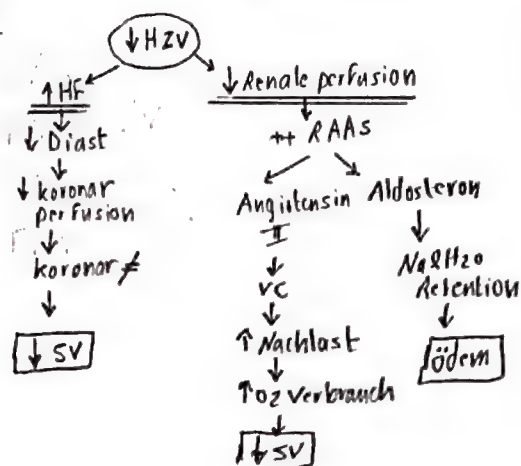 ↓HZV
↑HF
↓ Diast
↓ koronar
perfusion
koronar ≠
↓ SV
↓ Renale perfusion
++ RAAS
Angiotensin
II
VC
↑ Nachlast
↑O2 Verbrauch
↓ SV
Aldosteron
Na&H2O
Retention
ödem